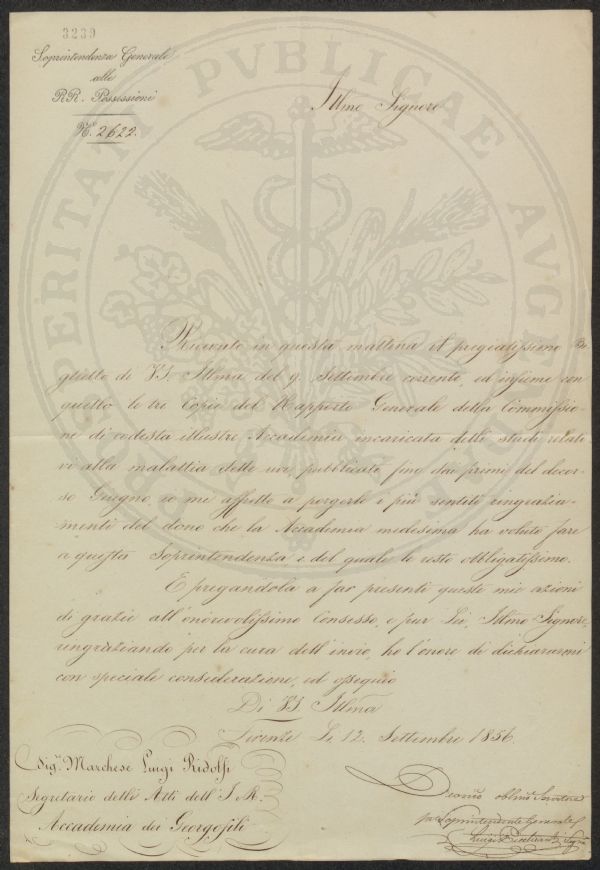 3239
Soprintendenza Generale
alle
RR. Possessioni
N.º 2622.
Illmo Signore
Ricevuto in questa mattina il pregiatissimo Bi
glietto di VS. Illma del 9. Settembre corrente, ed insieme con
quello le tre Copie del Rapporto Generale della Commissio
ne di codesta illustre Accademia incaricata delli studi relati
vi alla malattia delle uve, pubblicate fino dai primi del decor
so Giugno, io mi affretto a porgerle i più sentiti ringrazia
menti del dono che la Accademia medesima ha voluto fare
a questa Soprintendenza, e del quale le resto obbligatissimo.
E pregandola a far presenti queste mie azioni
di grazie all'onorevolissimo Consesso, e pur Lei, Illmo Signore,
ringraziando per la cura dell'invio, ho l'onore di dichiararmi
con speciale considerazione, ed ossequio
Di VS. Illma
Firenze Li 12. Settembre 1856.
Sig.r Marchese Luigi Ridolfi
Segretario delli Atti dell'I. e R.
Accademia dei Georgofili
Devmo obbmo Servitore
Soprintendente Generale
Luigi
PROSPERITATI PVBLICAE AVGENDAE